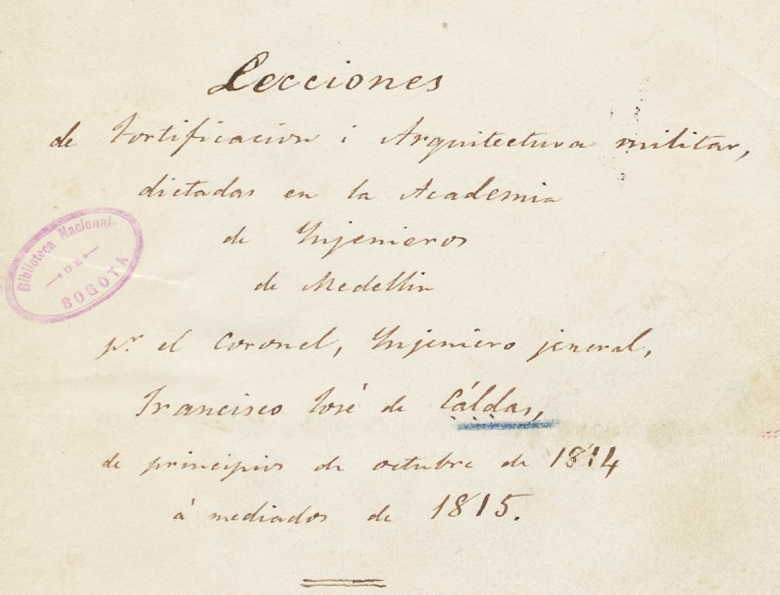 Lecciones
de Fortificacion i Arquitectura militar,
dictadas en la Academia
de Injenieros
de Medellin
pr. el Coronel, Injeniero jeneral,
Francisco José de Cáldas,
de principios de octubre de 1814
á mediados de 1815.
Biblioteca Nacional
DE
BOGOTA